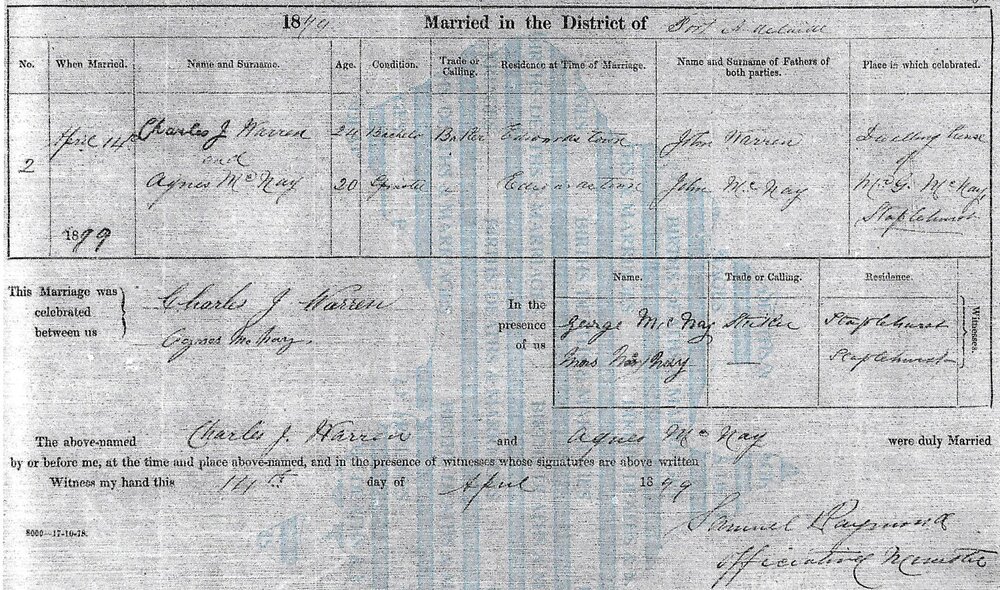 1879 Married in the District of Port Adelaide
No. When Married. Name and Surname. Age. Condition. Trade or Calling. Residence at Time of Marriage. Name and Surname of Fathers of both parties. Place in which celebrated.
2 April 14th Charles J Warren 24 Bachelor Baker Edwardstown John Warren Dwelling house
and of
Agnes McNay 20 Spinster " Edwardstown John McNay Mr G. McNay
1879 Staplehurst
This Marriage was celebrated between us
Charles J Warren
Agnes McNay
In the presence of us
Name. Trade or Calling. Residence.
George McNay Striker Staplehurst
McNay — Staplehurst
Witnesses.
The above-named Charles J. Warren and Agnes McNay were duly Married
by or before me, at the time and place above-named, and in the presence of witnesses whose signatures are above written
Witness my hand this 14th day of April 1879
Samuel Raymond
8000—17-10-78.
Officiating Minister